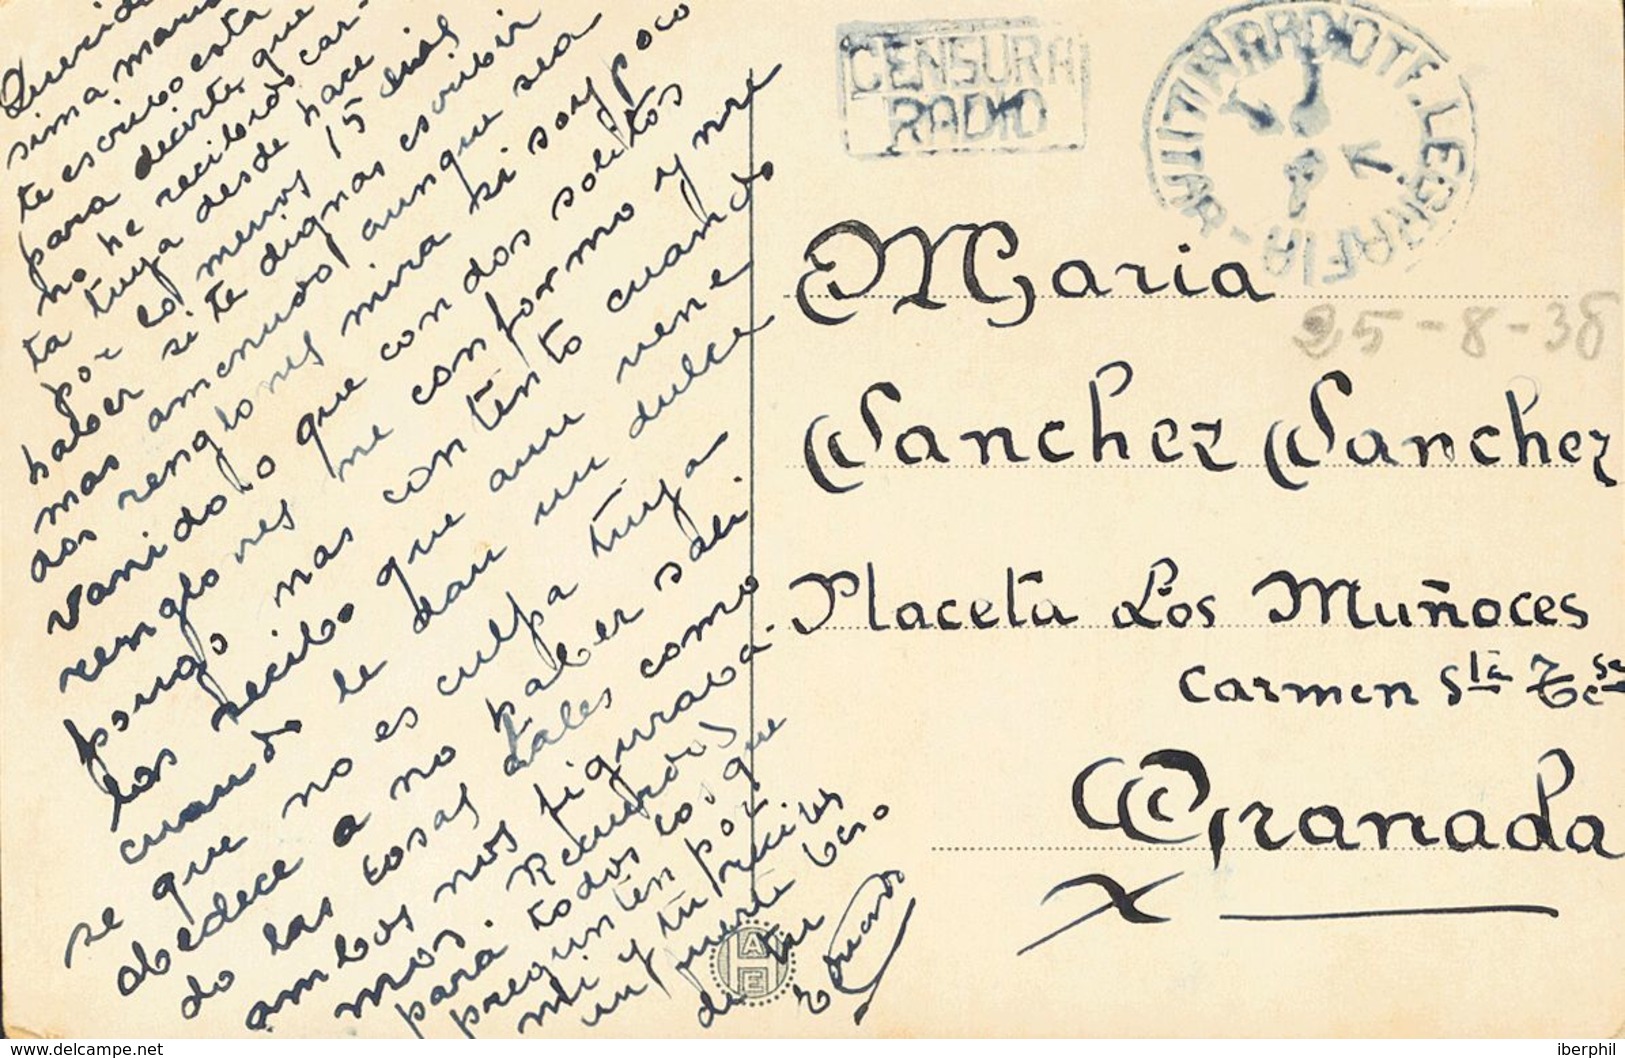 Querid
sima mari
te escribo esta
para decirte que
no he recibido car-
ta tuya desde hace
por lo menos 15 dias
haber si te dignas escribir
mas amenudo aunque sea
dos renglones mira si soy poco
vanidoso que con dos solitos
renglones me conformo y me
pongo mas contento cuando
las recibo que aun nene
cuando le dan un dulce
se que no es culpa tuya
obedece a no haber sali-
do las cosas tales como
ambos nos figuraba-
mos. Recuerdos
para todos los que
pregunten por
mi y tu recibes
un fuerte beso
de tu
Eduardo
CENSURA
RADIO
RADIOTELEGRAFIA
Maria
25-8-38
Sanchez Sanchez
Placeta Los Muñoces
Carmen Sta Tesa
Granada
A
H
E
www.delcampe.net
iberphil